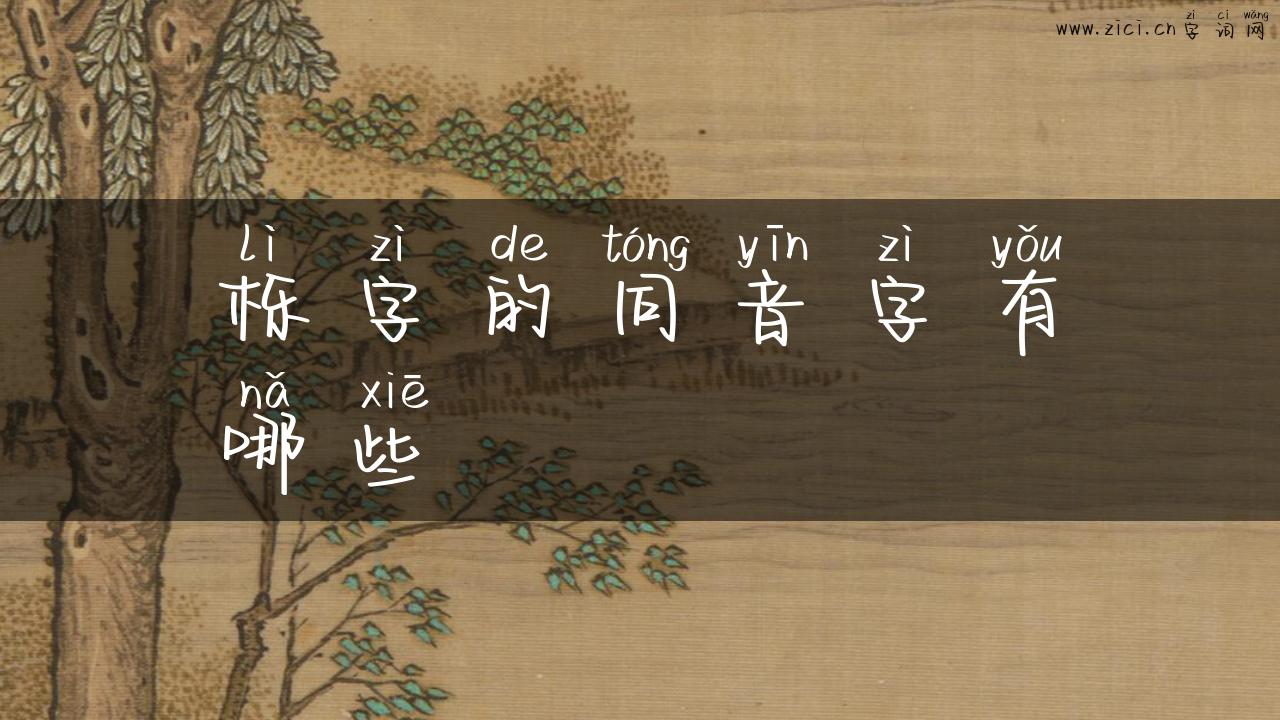 zì cí wǎng
www.zici.cn 字词网
lì zì de tóng yīn zì yǒu
栎字的同音字有
nǎ xiē
哪些